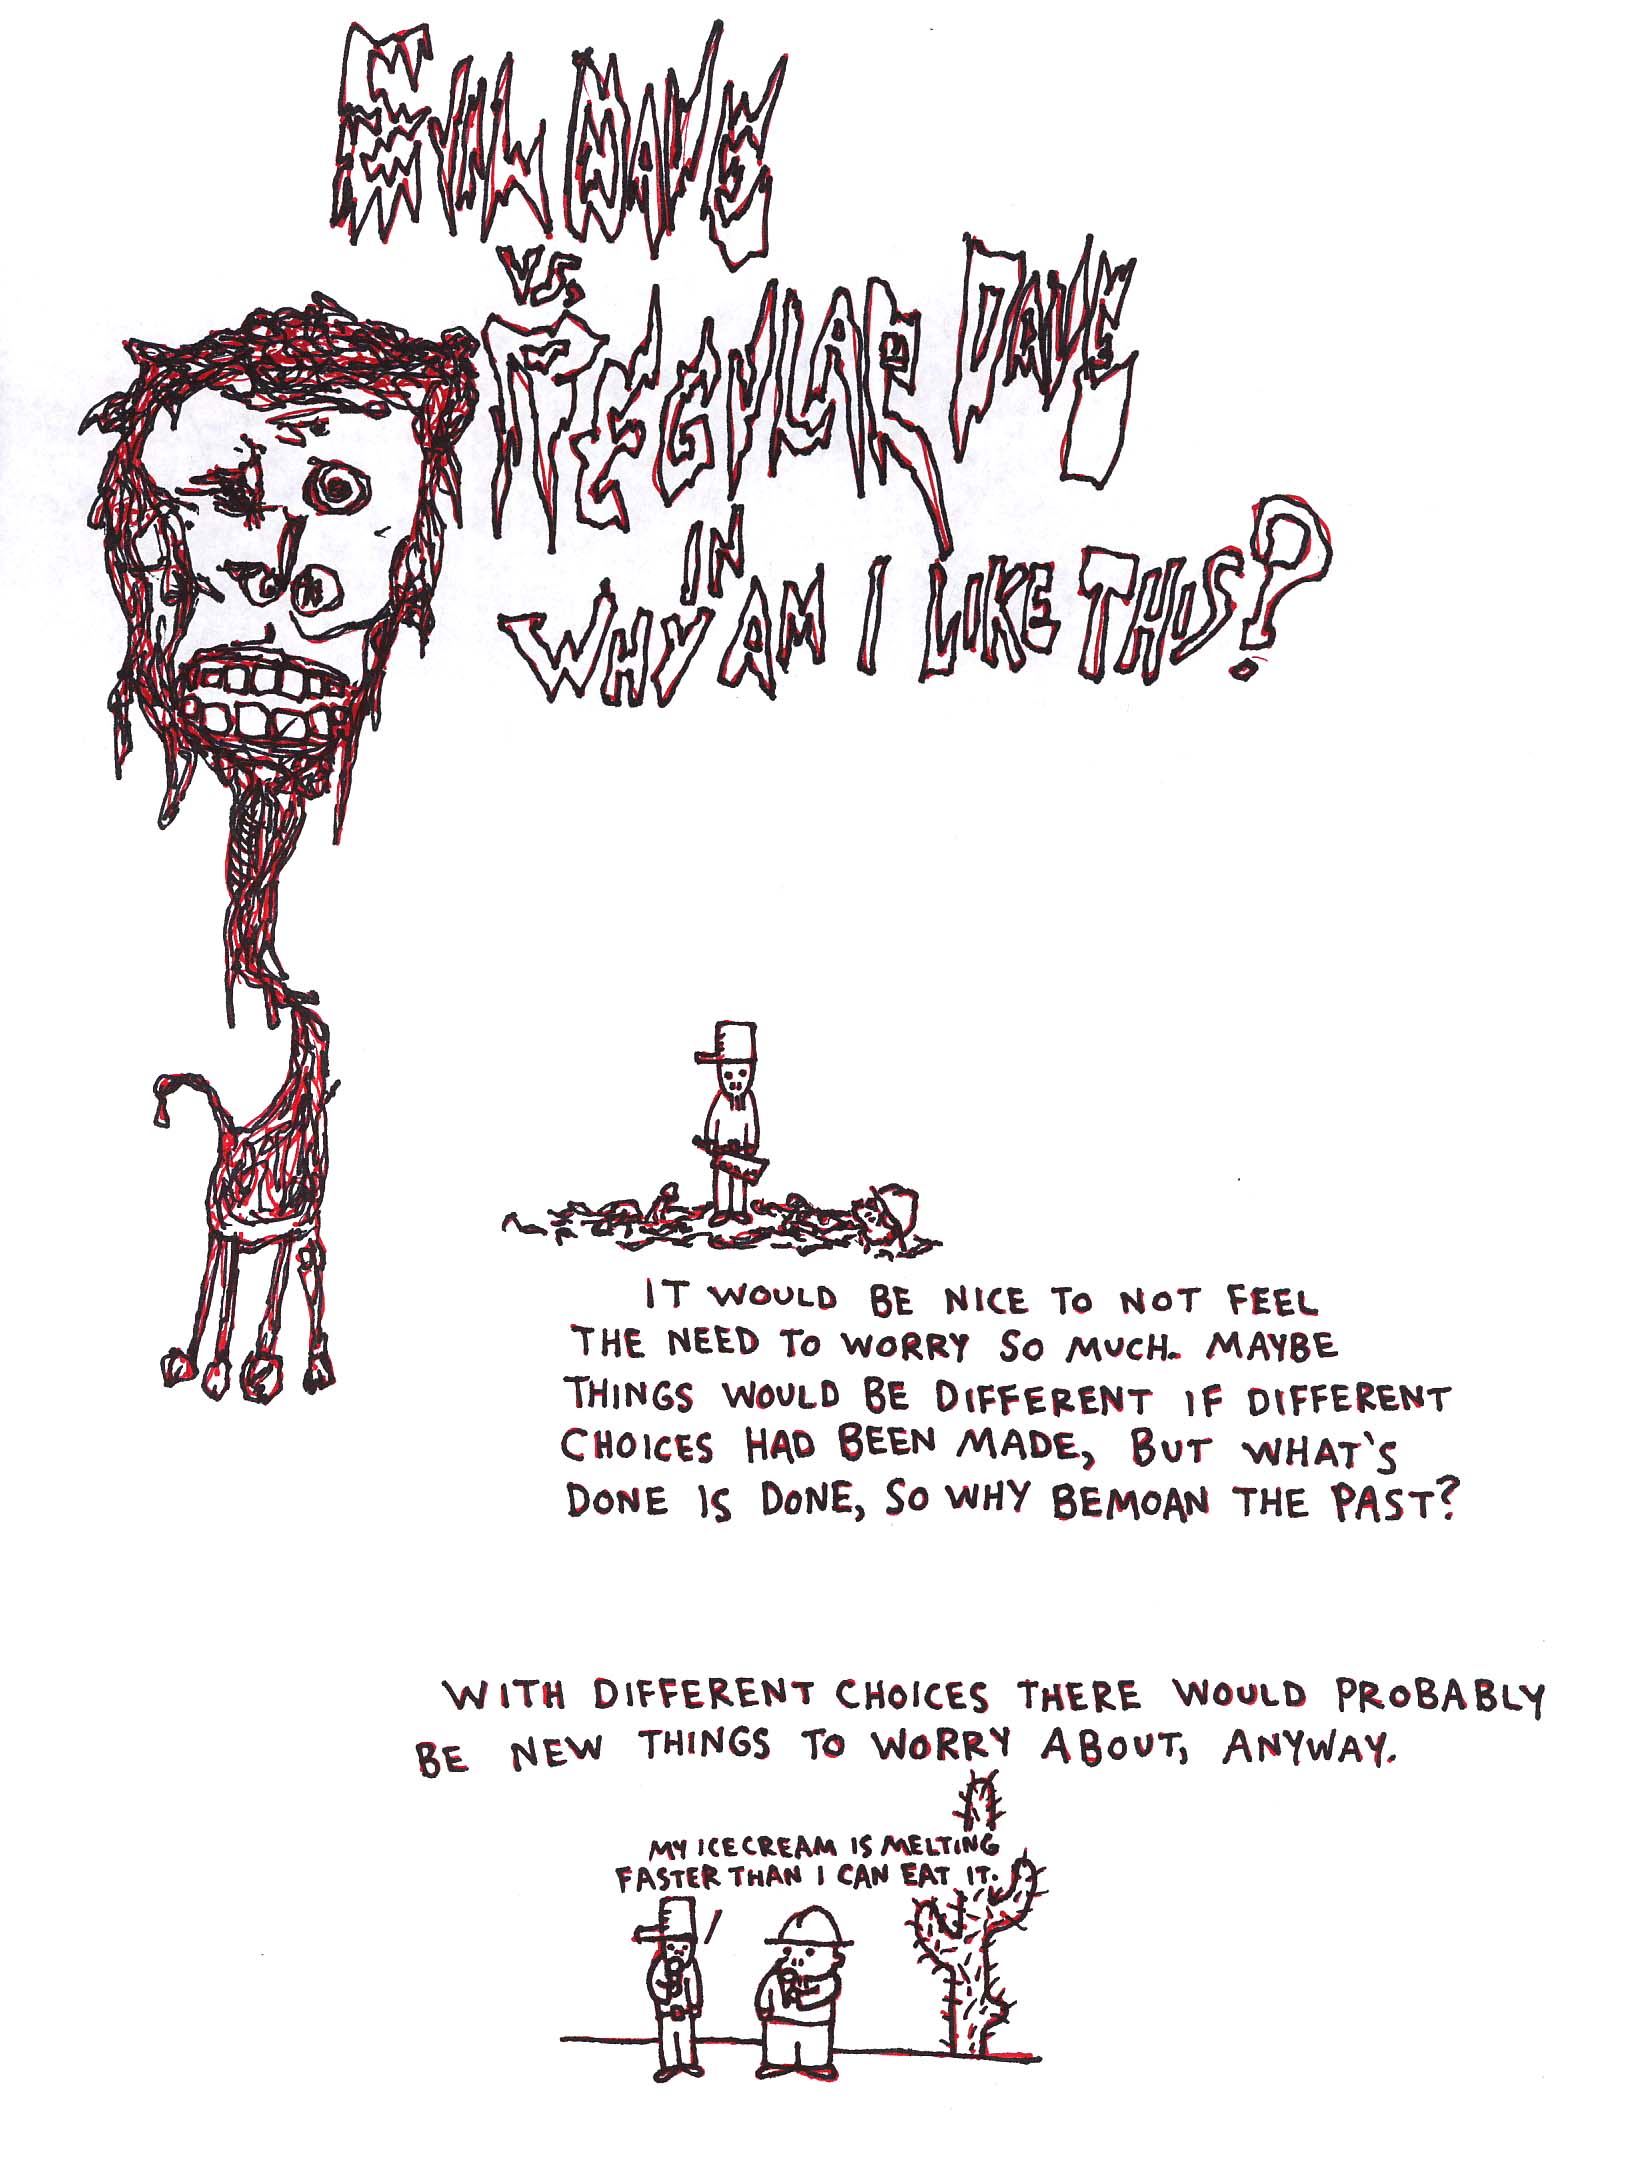 EVIL DAVE
VS.
REGULAR DAVE
IN
WHY AM I LIKE THIS?
IT WOULD BE NICE TO NOT FEEL
THE NEED TO WORRY SO MUCH. MAYBE
THINGS WOULD BE DIFFERENT IF DIFFERENT
CHOICES HAD BEEN MADE, BUT WHAT'S
DONE IS DONE, SO WHY BEMOAN THE PAST?
WITH DIFFERENT CHOICES THERE WOULD PROBABLY
BE NEW THINGS TO WORRY ABOUT, ANYWAY.
MY ICECREAM IS MELTING
FASTER THAN I CAN EAT IT.